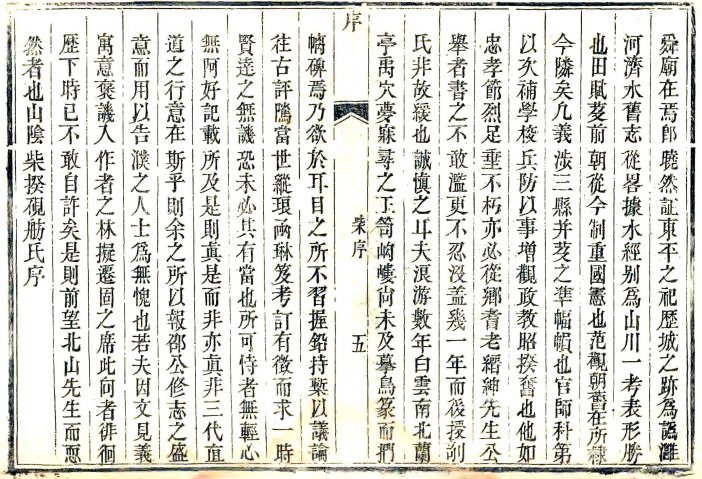 舜廟在焉郎曉然証東平之祀歷城之跡為譌灉
河濟水舊志從畧據水經别為山川一考表形勝
也田賦芟前朝從今制重國憲也范觀朝舊在所隸
今隣矣凡義涉三縣并芟之準幅幀也官師科第
以次補學校兵防以事增觀政教昭揆奮也他如
忠孝節烈足垂不朽亦必從鄉耆老縉紳先生公
舉者書之不敢濫更不忍没盖幾一年而後授剞
氏非故緩也誠慎之耳夫浪游數年白雲南北蘭
亭禹穴夢寐尋之玉笥岣嶁尙未及摹鳥篆而捫
序
柴序
五
螭碑焉乃欲於耳目之所不習握鉛持槧以議論
往古評隲當世縱琅函琳笈考訂有徵而求一時
賢達之無譏恐未必其有當也所可恃者無輕心
無阿好記載所及是則真是而非亦真非三代直
道之行意在斯乎則余之所以報邵公修志之盛
意而用以告濮之人士為無愧也若夫因文見義
寓意褒譏入作者之林擬遷固之席此向者徘徊
歷下時已不敢自許矣是則前望北山先生而恧
然者也山陰柴揆硯舫氏序